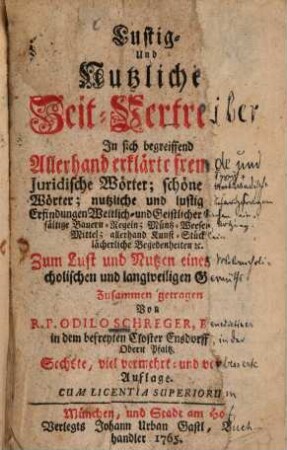 Lustig-
Und
Nutzliche
Zeit-Vertreiber
In sich begreiffend
Allerhand erklärte fremde und
Juridische Wörter; schöne
Wörter; nutzliche und lustig
Erfindungen Weltlich- und Geistlicher
fältige Bauern-Regeln; Müntz-Wesen
Mittel; allerhand Kunst-Stück
lächerliche Begebenheiten ec.
Zum Lust und Nutzen eines Melancholi-
cholischen und langweiligen Gemüths
Zusammen getragen
Von
R. P. ODILO SCHREGER,
in dem befreyten Closter Ensdorff, in der
Obern Pfaltz.
Sechste, viel vermehrt- und verbeserte
Auflage.
CUM LICENTIA SUPERIORUM
München, und Stadt am Hof,
Verlegts Johann Urban Gastl, Buch-
handler 1765.